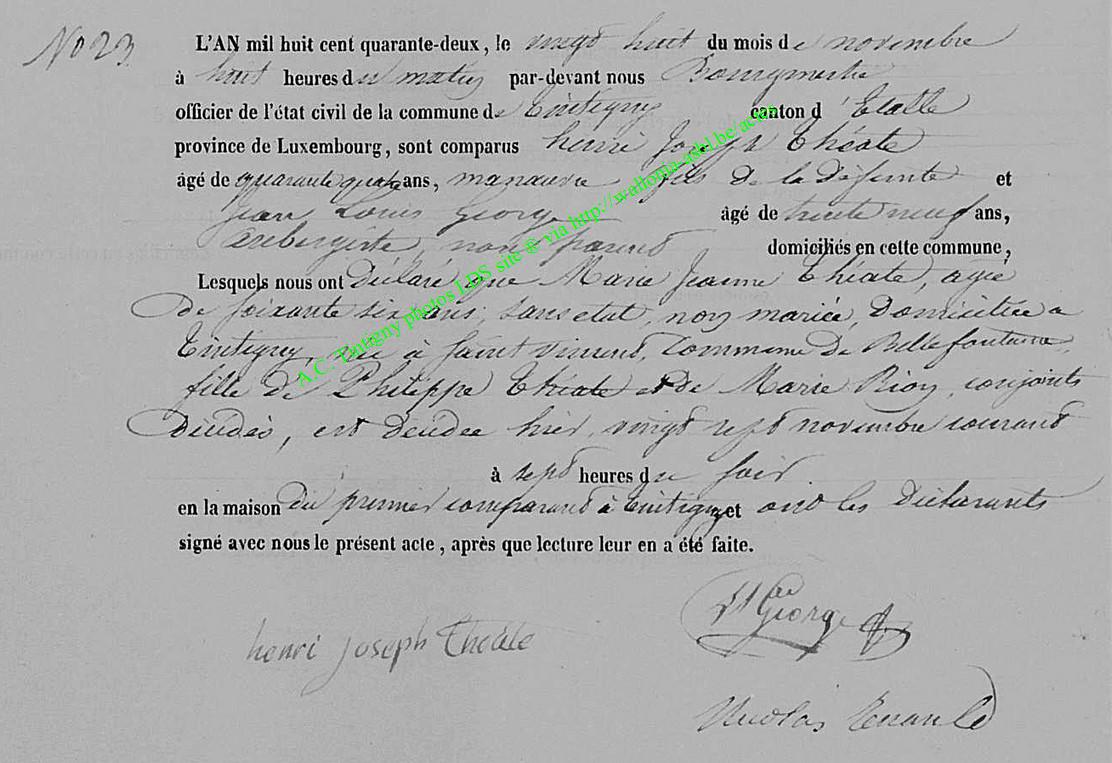 No 23
L'AN mil huit cent quarante-deux, le vingt huit du mois de novembre
à huit heures du matin par-devant nous Bourgmestre
officier de l'état civil de la commune de Tintigny canton d'Etalle
province de Luxembourg, sont comparus henri Joseph Théate
âgé de quarante quatre ans, manœuvre fils de la défunte et
Jean Louis George âgé de trente neuf ans,
aubergiste, non parent domiciliés en cette commune,
Lesquels nous ont Déclaré que Marie Jeanne Théate, agée
de soixante six ans, sans etat, non mariée Domiciliée a
Tintigny, née à Saint Vincent, Commune de Bellefontaine,
fille de Philippe Théate et de Marie Rion, conjoints
Décédés, est décédée hier, vingt sept novembre courant
à sept heures du soir
en la maison du premier comparant à Tintigny et ont les Déclarants
signé avec nous le présent acte, après que lecture leur en a été faite.
George
henri joseph Théate
Nicolas
A.C. Tintigny photos LDS site ® via http://wallonia-asbl.be/actan